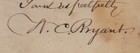 Yours respectfully
W. C. Bryant.